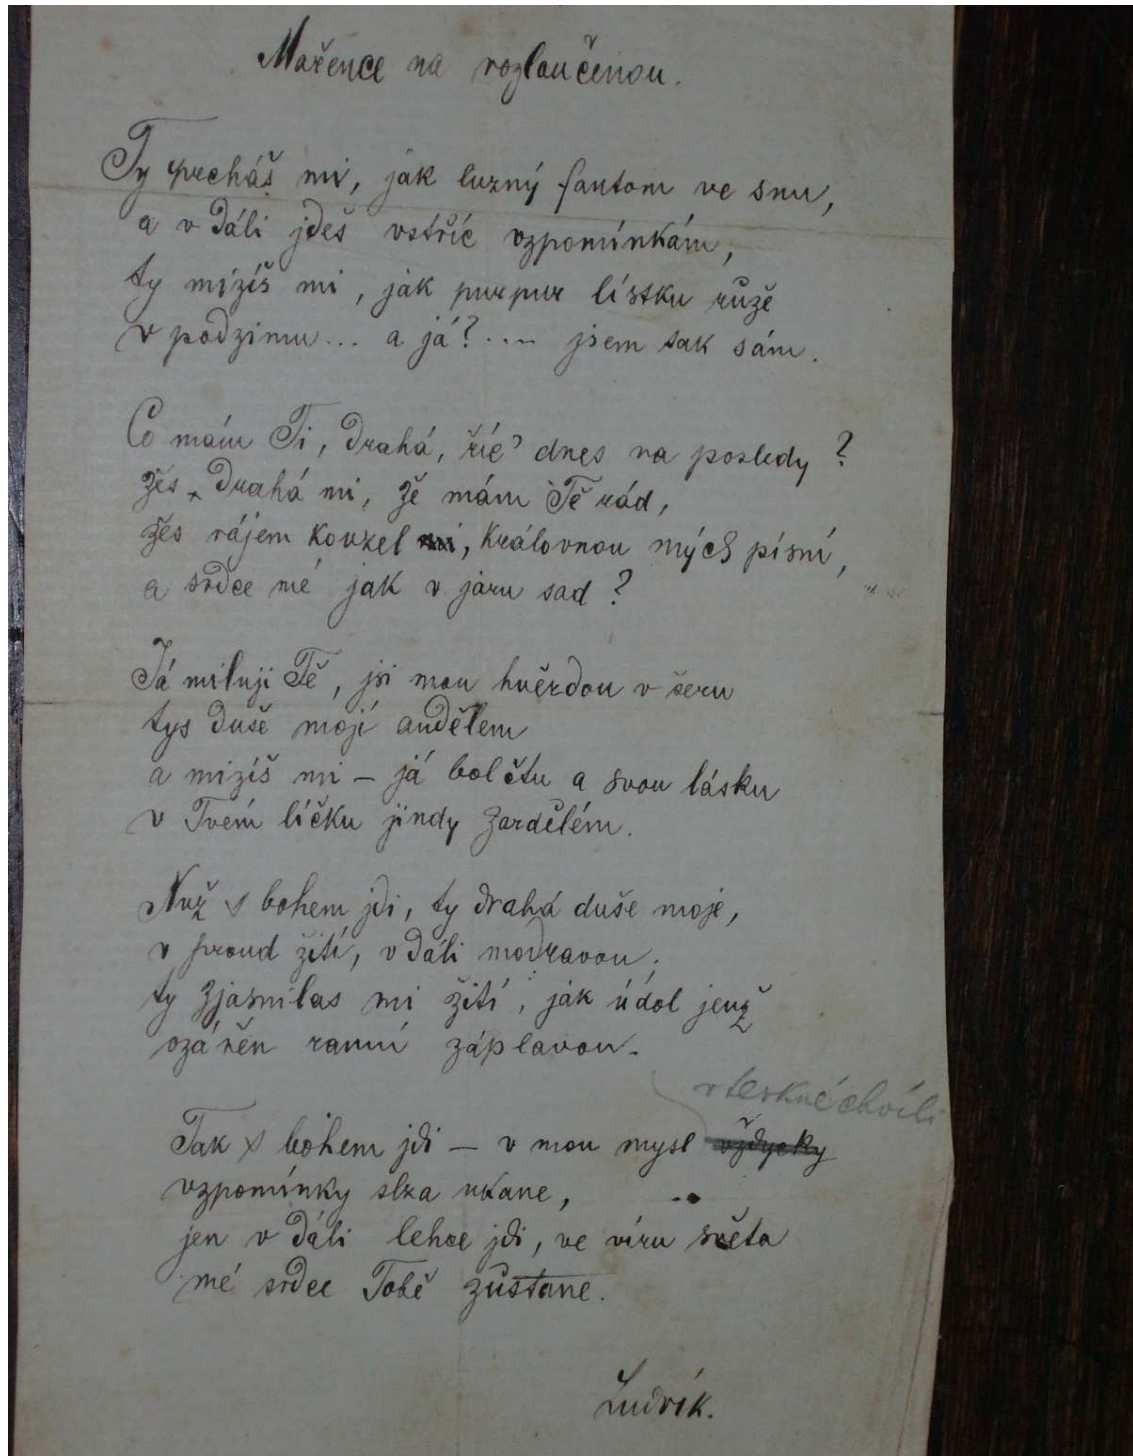 Mařence na rozloučenou.
Ty prcháš mi, jak luzný fantom ve snu,
a v dáli jdeš vstříc vzpomínkám,
ty mizíš mi, jak purpur lístku růže
v podzimu... a já?.... jsem tak sám.
Co mám Ti, drahá, říc' dnes na posledy?
žes drahá mi, že mám Tě rád,
žes rájem kouzel mi, královnou mých písní,
a srdce mé jak v jaru sad?
Já miluji Tě, jsi mou hvězdou v šeru
tys duše mojí andělem
a mizíš mi – já bol čtu a svou lásku
v Tvém líčku jindy zardělém.
Nuž s bohem jdi, ty drahá duše moje,
v proud žití, v dáli modravou.
ty zjasnilas mi žití, jak údol jenž
ozářen ranní záplavou.
v teskné chvíli
Tak s bohem jdi – v mou mysl vždycky
vzpomínky slza ukane,
jen v dáli lehce jdi, ve víru světa
mé srdce Tobě zůstane.
Ludvík.